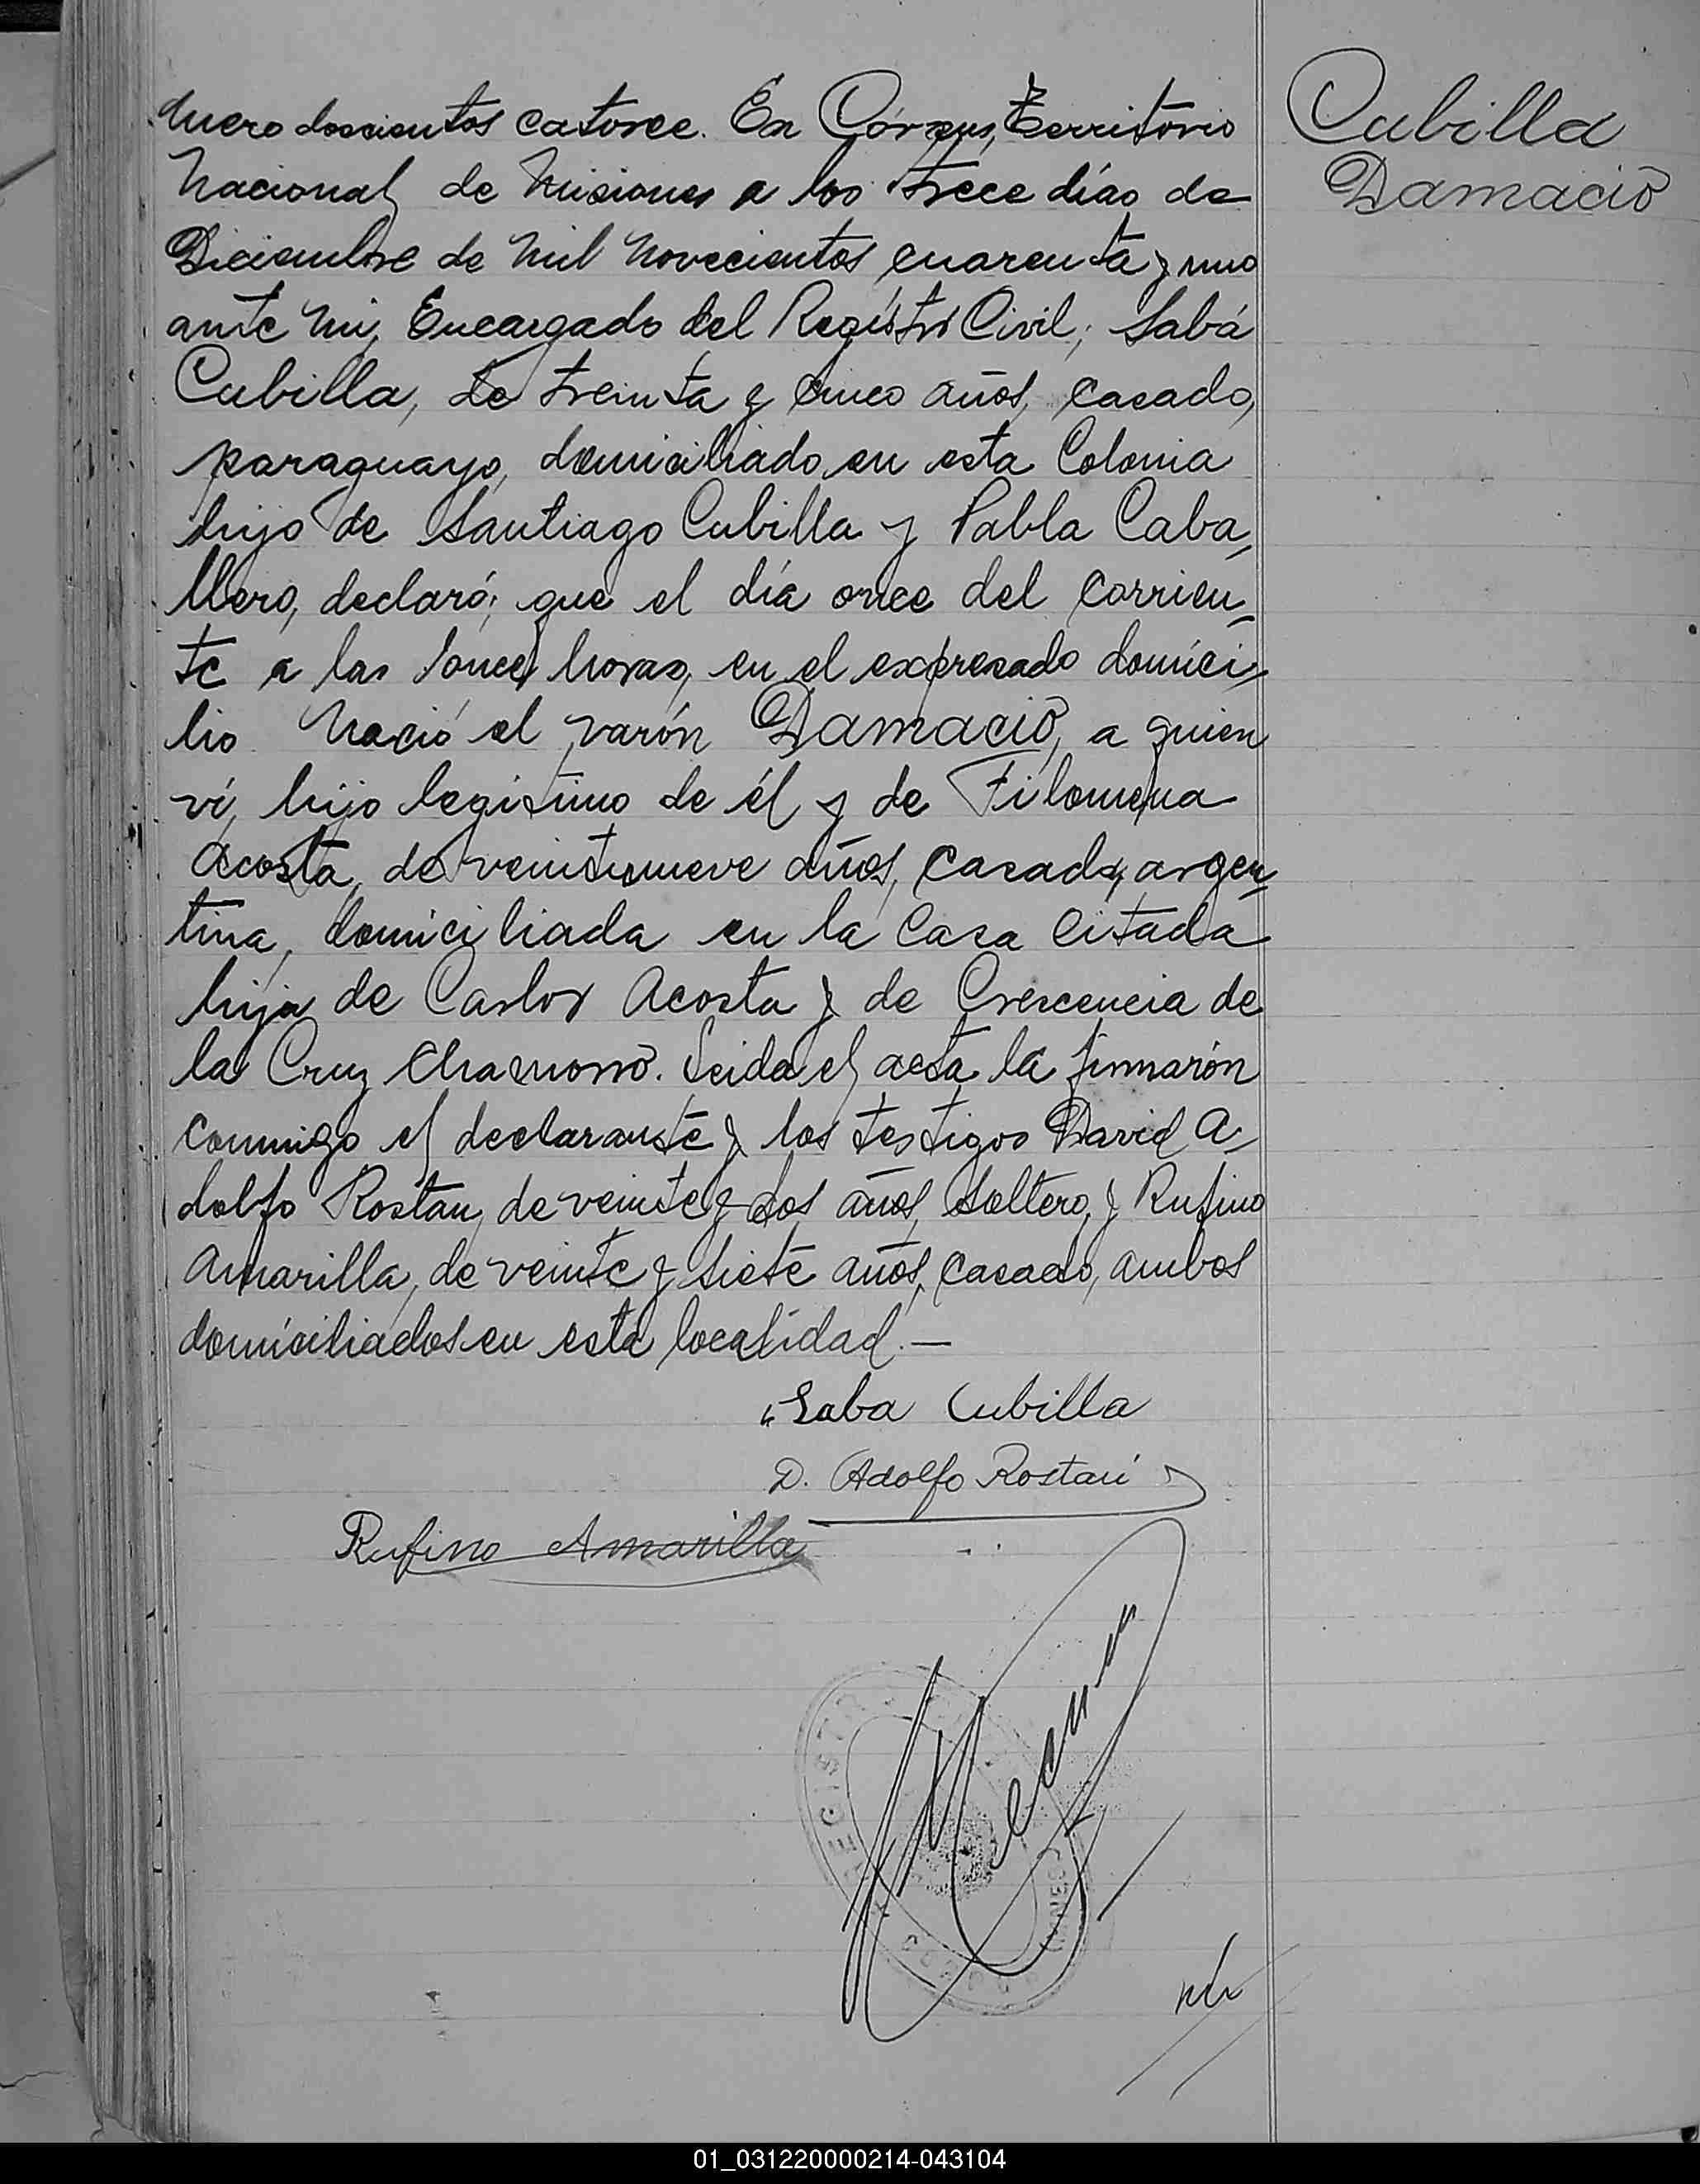 Cubilla
Damacio
mero doscientos catorce. En Córpus, Territorio
Nacional de Misiones a los trece días de
Diciembre de mil novecientos cuarenta y uno
ante mi, Encargado del Registro Civil; Sabá
Cubilla, de treinta y cinco años, casado,
paraguayo, domiciliado en esta Colonia
hijo de Santiago Cubilla y Pabla Caba-
llero, declaró; que el día once del corrien-
te a las once horas, en el expresado domici-
lio nació el varón Damacio, a quien
ví, hijo legitimo de él y de Filomena
Acosta, de veintinueve años, casada, argen-
tina, domiciliada en la casa citada
hija de Carlos Acosta y de Crescencia de
la Cruz Chamorro. Leida el acta la firmarón
conmigo el declarante y los testigos David A-
dolfo Rostan, de veinte y dos años, soltero, y Rufino
Amarilla, de veinte y siete años, casado, ambos
domiciliados en esta localidad.—
Saba Cubilla
D. Adolfo Rostan
Rufino Amarilla
REGISTRO
01_031220000214-043104